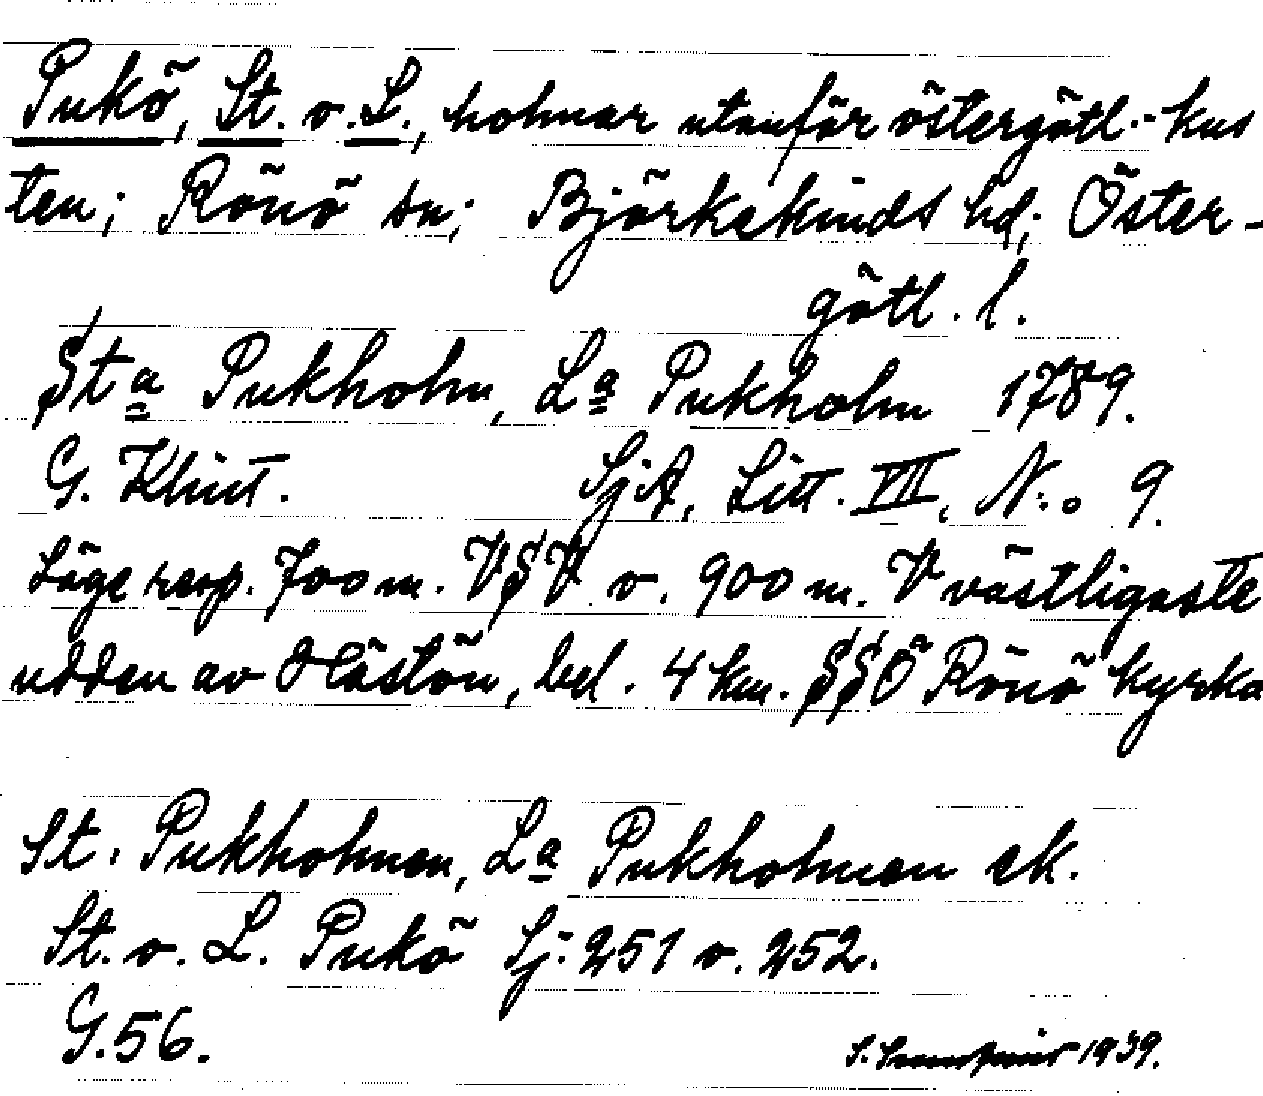 Pukö, St. o. L., holmar utanför östergötl.-kus
ten; Rönö sn; Björkekinds hd; Öster-
götl. l.
Sta Pukholm, La Pukholm 1789.
G. Klint. SjA, Litt. VII, N:o 9.
Läge resp. 700 m. VSV o. 900 m. V västligaste
udden av Hästön, bel. 4 km. SSÖ Rönö kyrka
St. Pukholmen, La Pukholmen ek.
St. o. L. Pukö Sj: 251 o. 252.
G. 56.
S. 1939.